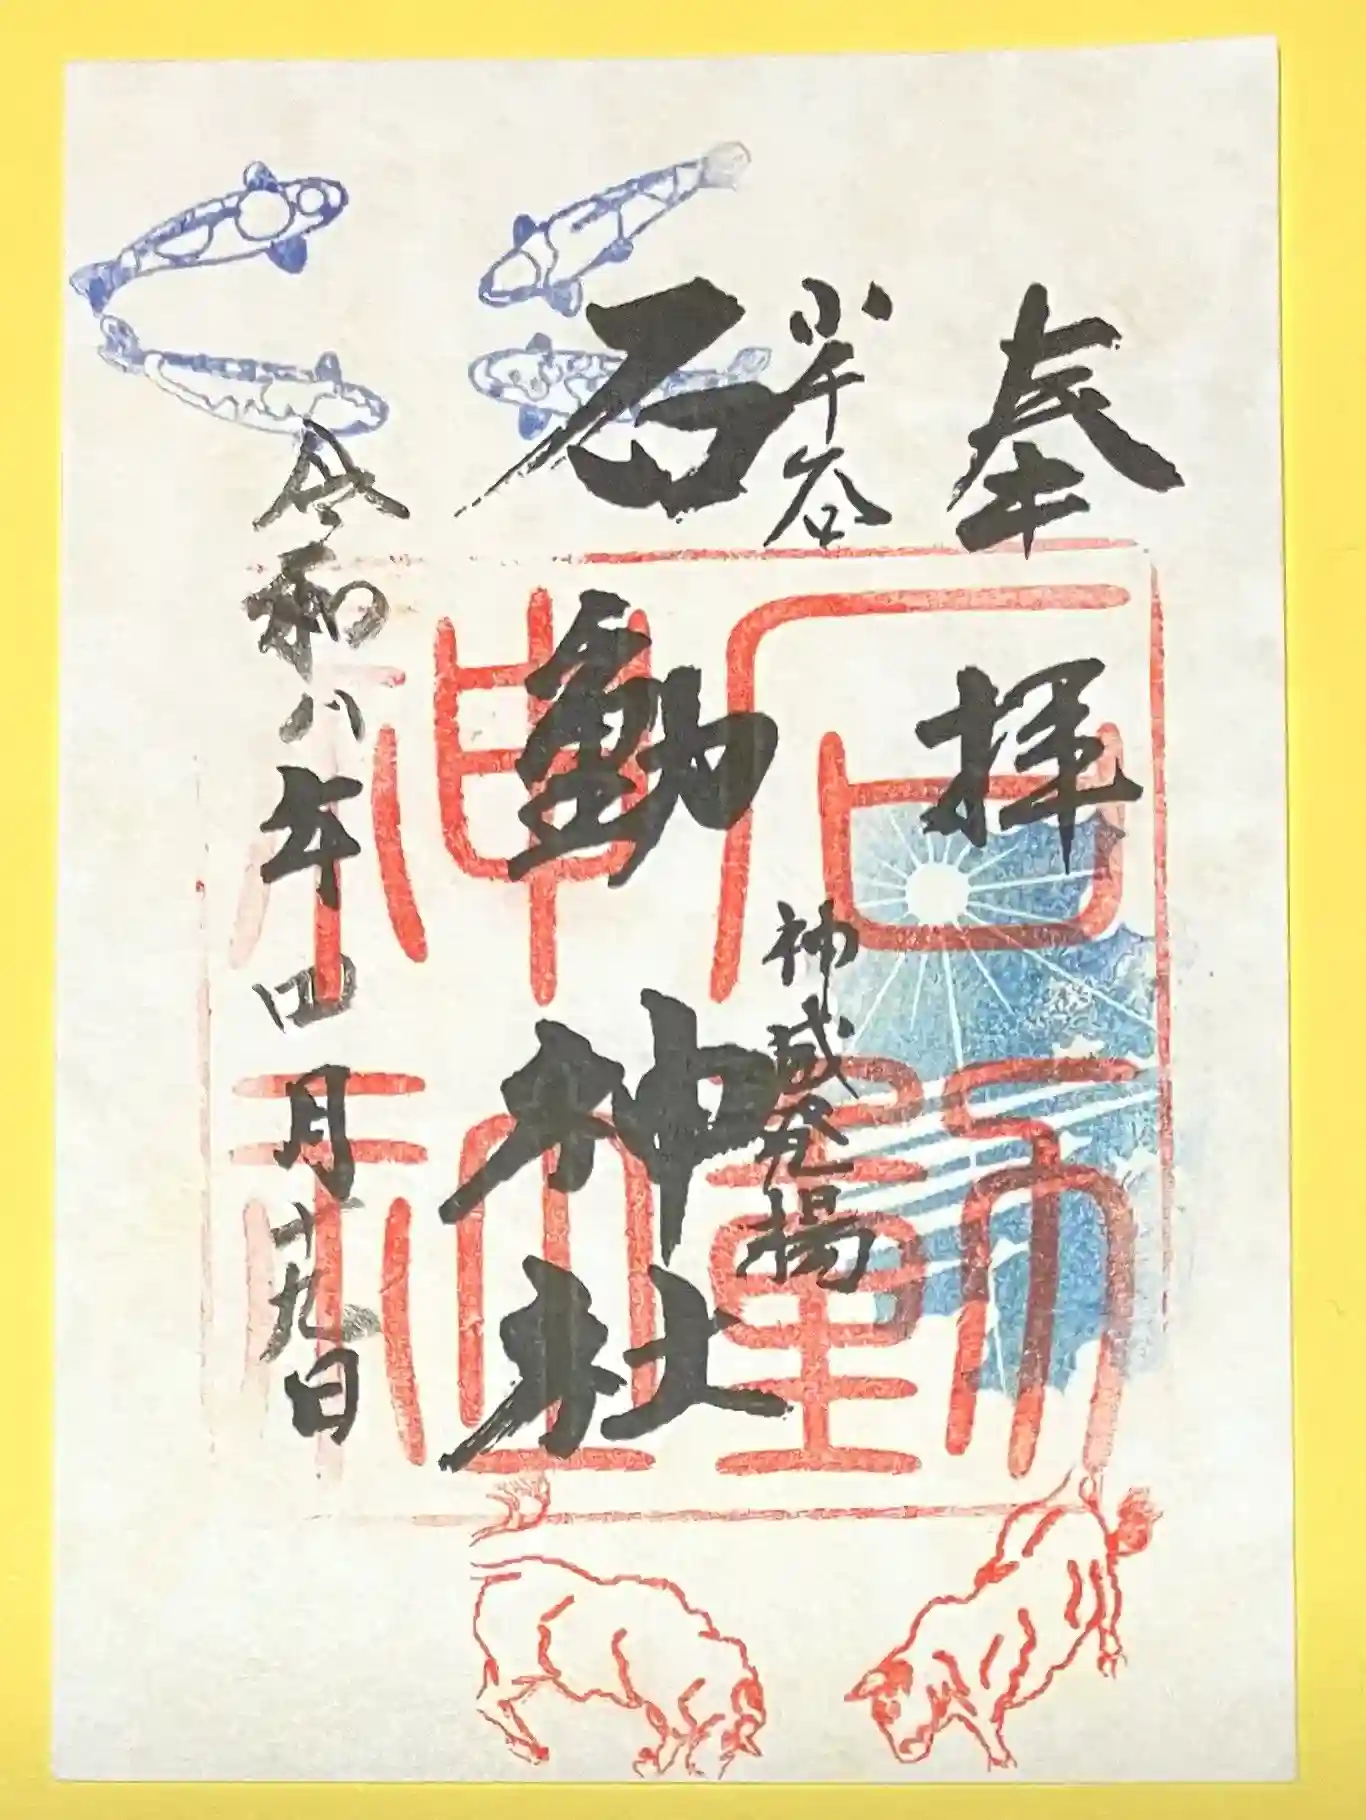 奉拝
小千谷
神威発揚
石動神社
令和八年四月十九日
石動神社神社